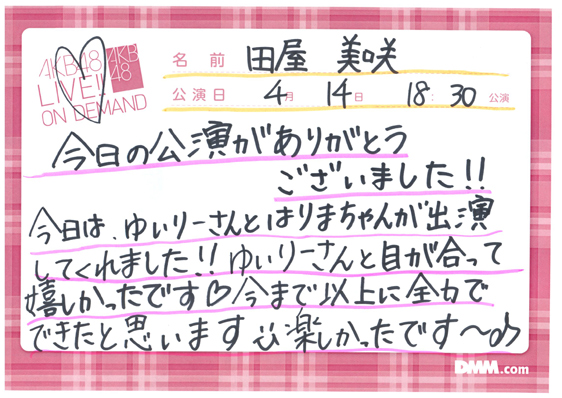 AKB48
LIVE!!
ON DEMAND
AKB
48
名前 田屋 美咲
公演日 4月 14日 18:30 公演
今日の公演がありがとう
ございました!!
今日は、ゆいりーさんとはりまちゃんが出演
してくれました!! ゆいりーさんと目が合って
嬉しかったです♡今まで以上に全力で
できたと思います 楽しかったです〜♪
DMM.com